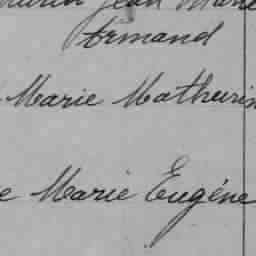 Jean Marie
Armand
Marie Mathurin
Marie Eugène